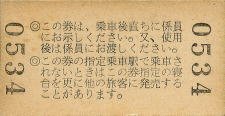 ◎この券は、乗車後直ちに係員
にお示しください。又、使用
後は係員にお渡しください。
◎この券の指定乗車駅で乗車さ
れないときはこの券指定の寝
台を更に他の旅客に発売する
ことがあります。
0534
0534